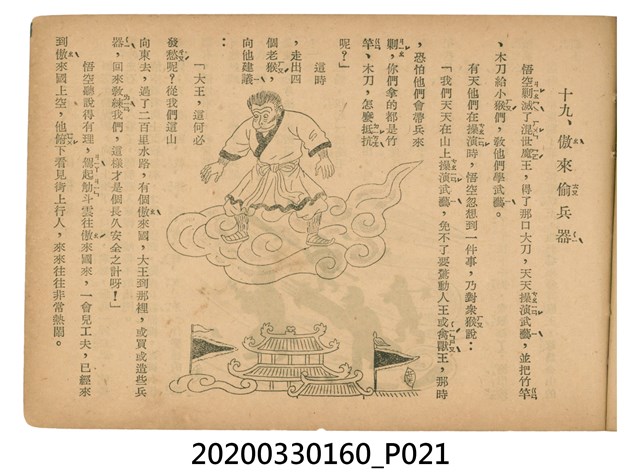 十九、傲來偷兵器
悟空剿滅了混世魔王，得了那口大刀，天天操演武藝，並把竹竿
、木刀給小猴們，教他們學武藝。
有天他們在操演時，悟空忽想到一件事，乃對眾猴說：
「我們天天在山上操演武藝，免不了要驚動人王或禽獸王，那時
，恐怕他們會帶兵來
剿，你們拿的都是竹
竿、木刀，怎麼抵抗
呢？」
這時
，走出四
個老猴，
向他建議
：
「大王，這何必
發愁呢？從我們這山
向東去，過了二百里水路，有個傲來國，大王到那裡，或買或造些兵
器，回來教練我們，這樣才是個長久安全之計呀！」
悟空聽說得有理，駕起觔斗雲往傲來國來，一會兒工夫，已經來
到傲來國上空，他俯下看見街上行人，來來往往非常熱鬧。
20200330160_P021